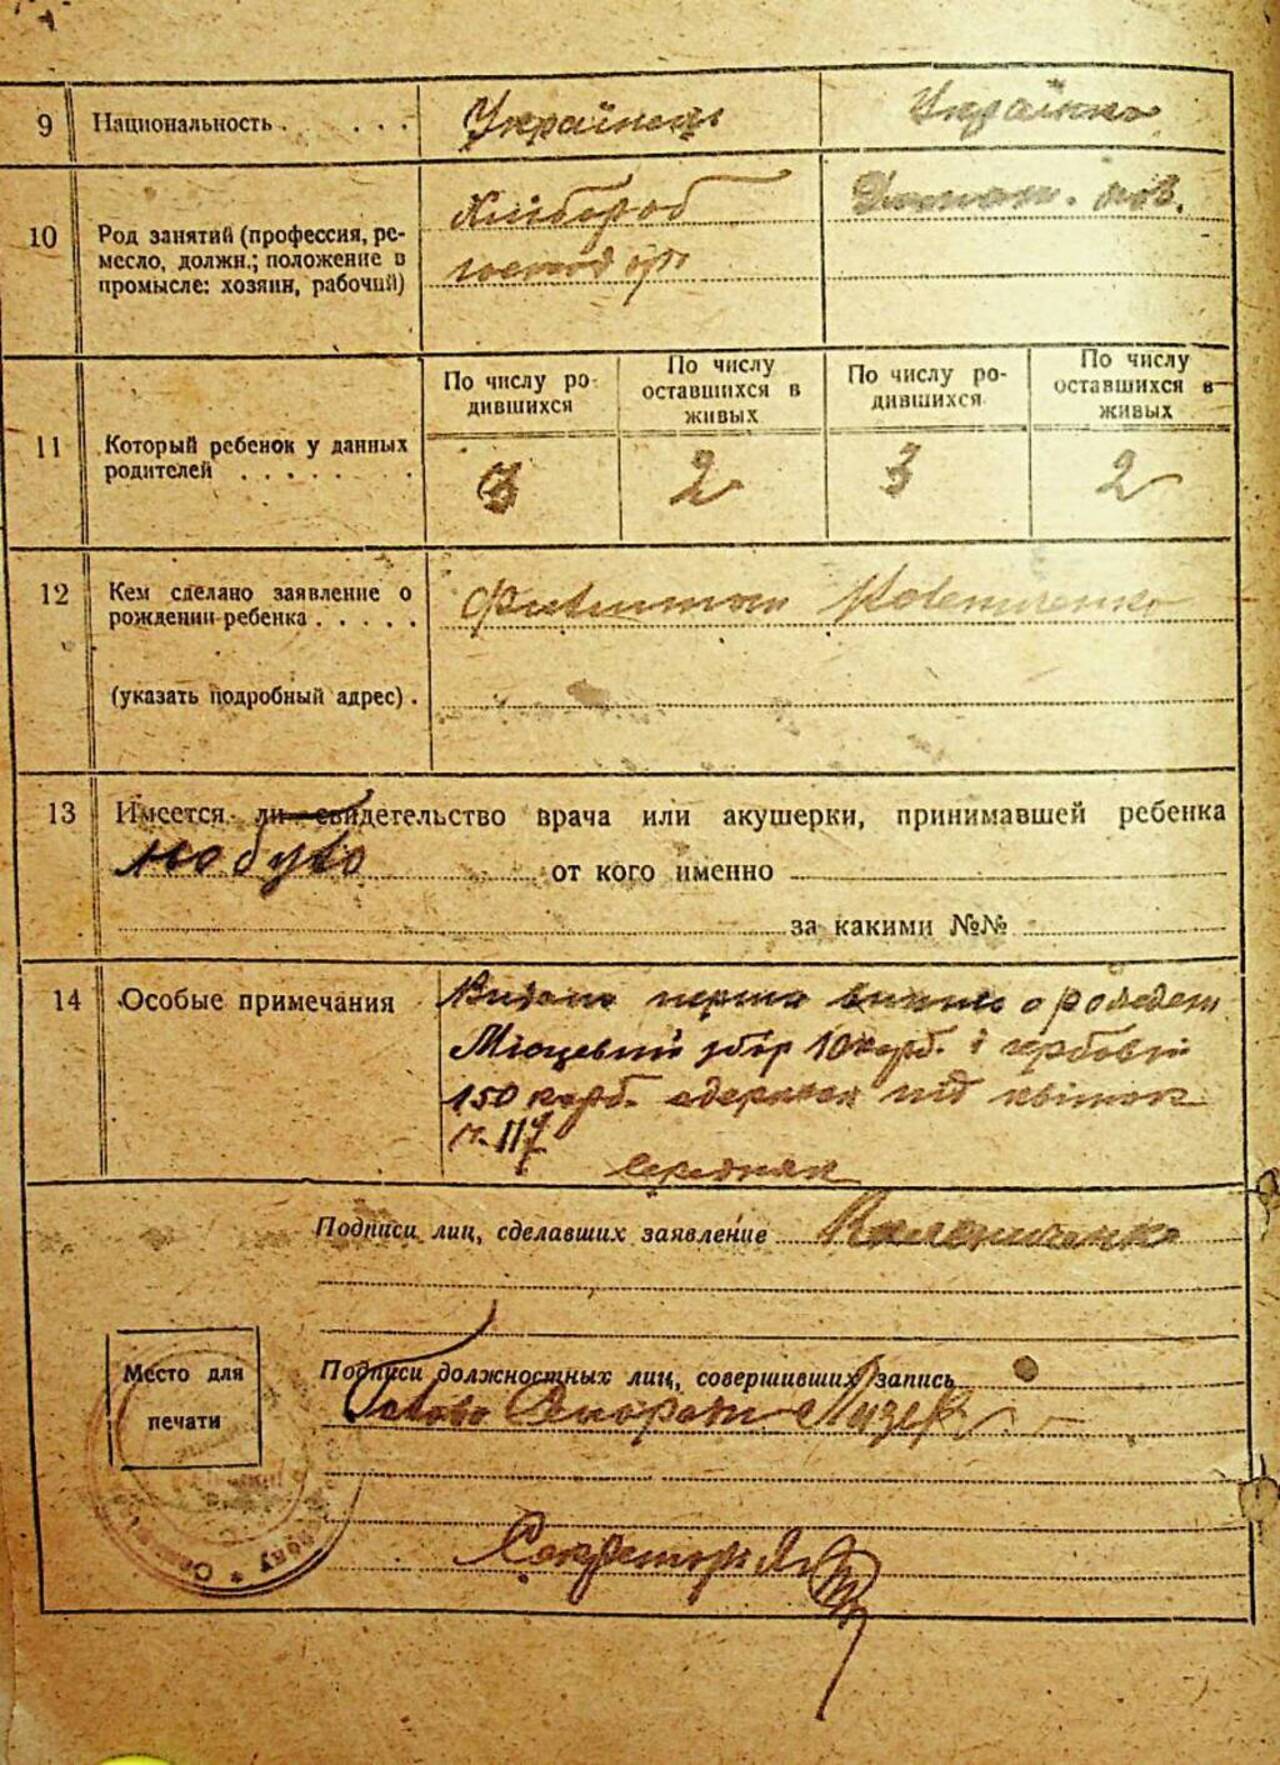 9 Национальность . . . . Українець Українка
10 Род занятий (профессия, ре-
месло, должн.; положение в
промысле: хозяин, рабочий)
Хлібороб
господар
По числу ро-
дившихся
По числу
оставшихся в
живых
По числу ро-
дившихся
По числу
оставшихся в
живых
11 Который ребенок у данных
родителей . . . . . .
3 2 3 2
12 Кем сделано заявление о
рождении ребенка . . . . .
(указать подробный адрес) .
13 Имеется ли свидетельство врача или акушерки, принимавшей ребенка
не було от кого именно
за какими №№
14 Особые примечания
Видано перша
Місцевий збір 10 карб. і гербовий
150 карб. одержан під квіток
117
Середняк
Подписи лиц, сделавших заявление
Место для
печати
Подписи должностных лиц, совершивших запись
Голова
Секретарь